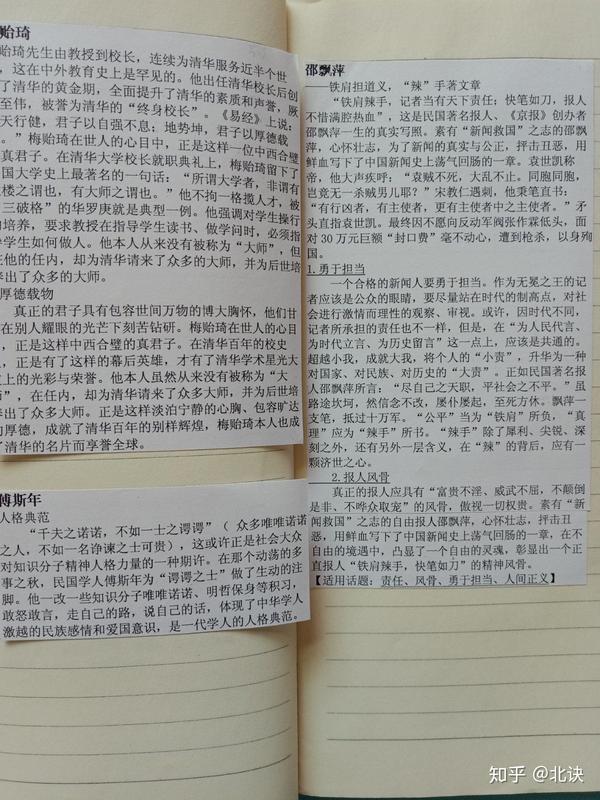 贻琦
贻琦先生由教授到校长，连续为清华服务近半个世
，这在中外教育史上是罕见的。他出任清华校长后创
了清华的黄金期，全面提升了清华的素质和声誉，厥
至伟，被誉为清华的“终身校长”。《易经》上说：
天行健，君子以自强不息；地势坤，君子以厚德载
”梅贻琦在世人的心目中，正是这样一位中西合璧
真君子。在清华大学校长就职典礼上，梅贻琦留下了
国大学史上最著名的一句话：“所谓大学者，非谓有
楼之谓也，有大师之谓也。”他不拘一格揽人才，被
三破格”的华罗庚就是典型一例。他强调对学生操行
培养，要求教授在指导学生读书、做学问时，必须指
学生如何做人。他本人从来没有被称为“大师”，但
他的任内，却为清华请来了众多大师，并为后世培
出了众多的大师。
厚德载物
真的君子具有包容世间万物的博大胸怀，他们甘
在别人耀眼的光芒下刻苦钻研。梅贻琦在世人的心目
，正是这样中西合璧的真君子。在清华百年的校史
，正是有了这样的幕后英雄，才有了清华学术星光大
上的光彩与荣誉。他本人虽然从来没有被称为“大
”，在任内，却为清华请来了众多大师，并为后世培
出了众多大师。正是这样淡泊宁静的心胸、包容旷达
厚德，成就了清华百年的别样辉煌，梅贻琦本人也成
了清华的名片而享誉全球。
傅斯年
人格典范
“千夫之诺诺，不如一士之谔谔”（ 众多唯唯诺诺
之人，不如一名诤谏之士可贵），这或许正是社会大众
对知识分子精神人格力量的一种期许。在那个动荡的多
事之秋，民国学人傅斯年为“谔谔之士”做了生动的注
脚。他一改一些知识分子唯唯诺诺、明哲保身等积习，
敢怒敢言，走自己的路，说自己的话，体现了中华学人
激越的民族感情和爱国意识，是一代学人的人格典范。
邵飘萍
——铁肩担道义，“辣”手著文章
“铁肩辣手，记者当有天下责任；快笔如刀，报人
不惜满腔热血”，这是民国著名报人、《京报》创办者
邵飘萍一生的真实写照。素有“新闻救国”之志的邵飘
萍，心怀壮志，为了新闻的真实与公正，抨击丑恶，用
鲜血写下了中国新闻史上荡气回肠的一章。袁世凯称
帝，他大声疾呼：“袁贼不死，大乱不止。同胞同胞，
岂竟无一杀贼男儿耶？”宋教仁遇刺，他秉笔直书：
“有行凶者，有主使者，更有主使者中之主使者。”矛
头直指袁世凯。最终因不愿向反动军阀张作霖低头，面
对30万元巨额“封口费”毫不动心，遭到枪杀，以身殉
国。
1.勇于担当
一个合格的新闻人要勇于担当。作为无冕之王的记
者应该是公众的眼睛，要尽量站在时代的制高点，对社
会进行激情而理性的观察、审视。或许，因时代不同，
记者所承担的责任也不一样。但是，在“为人民代言、
为时代立言、为历史留言”这一点上，应该是共通的。
超越小我，成就大我，将个人的“小责”，升华为一种
对国家、对民族、对历史的“大责”。正如民国著名报
人邵飘萍所言：“尽自己之天职，平社会之不平。”虽
路途坎坷，然信念不改，屡仆屡起，至死方休。飘萍一
支笔，抵过十万军。“公平”当为“铁肩”所负，“真
理”应为“辣手”所书。“辣手”除了犀利、尖锐、深
刻之外，还有另外一层含义，在“辣”的背后，应有一
颗济世之心。
2.报人风骨
真正的报人应具有“富贵不淫、威武不屈，不颠倒
是非、不哗众取宠”的风骨，傲视一切权贵。素有“新
闻救国”之志的自由报人邵飘萍，心怀壮志，抨击丑
恶，用鲜血写下了中国新闻史上荡气回肠的一章，在不
自由的境遇中，凸显了一个自由的灵魂，彰显出一个正
直报人“铁肩辣手，快笔如刀”的精神风骨。
【适用话题：责任、风骨、勇于担当、人间正义】
知乎 @北诀